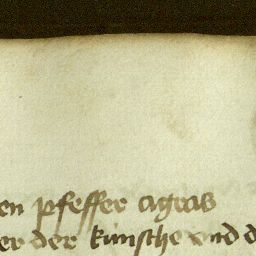 en pfeffer agras
er der kunsche und d